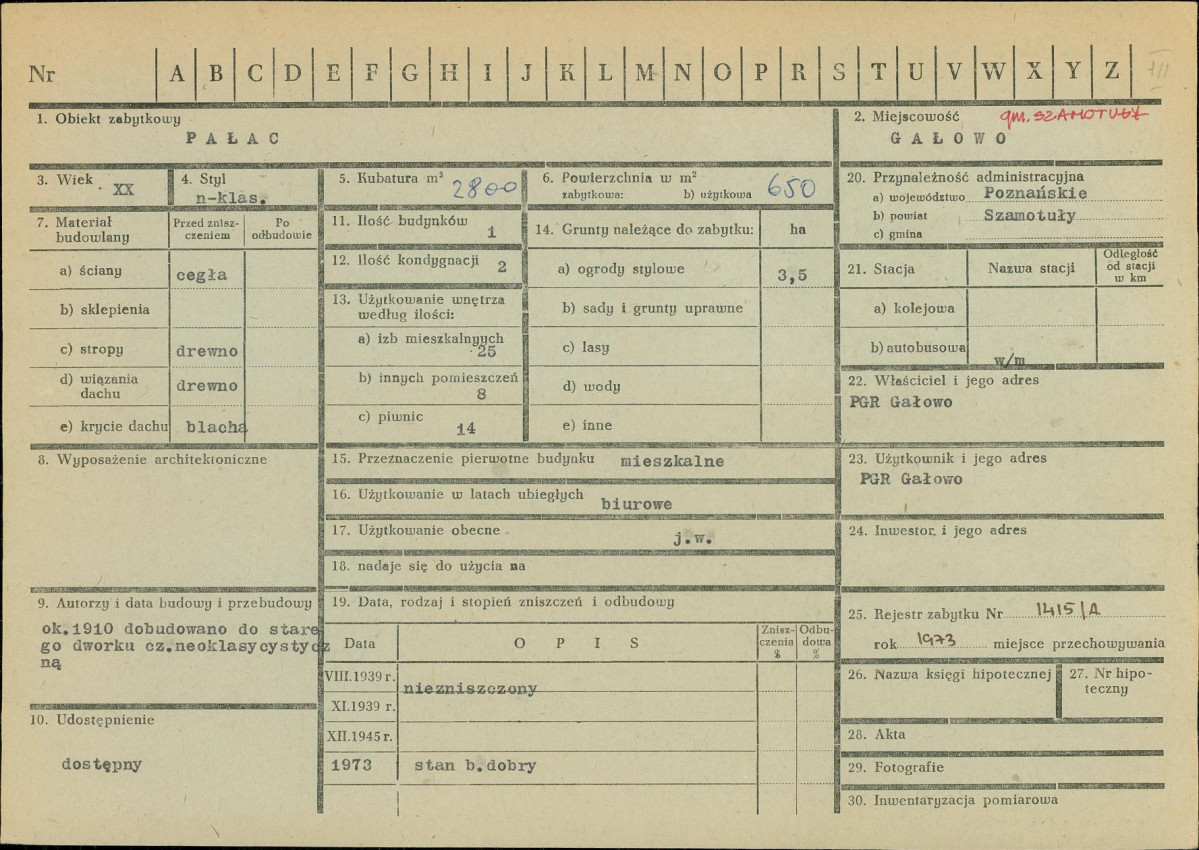 Nr A B C D E F G H I J K L M N O P R S T U V W X Y Z
1. Obiekt zabytkowy
PAŁAC
2. Miejscowość gm. SZAMOTUŁY
GAŁOWO
3. Wiek XX
4. Styl
n-klas.
5. Kubatura m³ 2800
6. Powierzchnia w m²
zabytkowa: b) użytkowa 650
7. Materiał budowlany
Przed zniszczeniem
Po odbudowie
a) ściany cegła
b) sklepienia
c) stropy drewno
d) wiązania dachu drewno
e) krycie dachu blacha
8. Wyposażenie architektoniczne
9. Autorzy i data budowy i przebudowy
ok.1910 dobudowano do stare
go dworku cz.neoklasycystycz
ną
10. Udostępnienie
dostępny
11. Ilość budynków 1
12. Ilość kondygnacji 2
13. Użytkowanie wnętrza
według ilości:
a) izb mieszkalnych
25
b) innych pomieszczeń
8
c) piwnic
14
14. Grunty należące do zabytku: ha
a) ogrody stylowe 3,5
b) sady i grunty uprawne
c) lasy
d) wody
e) inne
15. Przeznaczenie pierwotne budynku mieszkalne
16. Użytkowanie w latach ubiegłych
biurowe
17. Użytkowanie obecne j.w.
18. nadaje się do użycia na
19. Data, rodzaj i stopień zniszczeń i odbudowy
Data OPIS
Zniszczenia %
Odbudowa %
VIII.1939 r.
niezniszczony
XI.1939 r.
XII.1945 r.
1973 stan b.dobry
20. Przynależność administracyjna
a) województwo Poznańskie
b) powiat Szamotuły
c) gmina
21. Stacja Nazwa stacji
Odległość
od stacji
w km
a) kolejowa
b) autobusowa w/m
22. Właściciel i jego adres
PGR Gałowo
23. Użytkownik i jego adres
PGR Gałowo
24. Inwestor i jego adres
25. Rejestr zabytku Nr 1415/A
rok 1973 miejsce przechowywania
26. Nazwa księgi hipotecznej
27. Nr hipo-
teczny
28. Akta
29. Fotografie
30. Inwentaryzacja pomiarowa